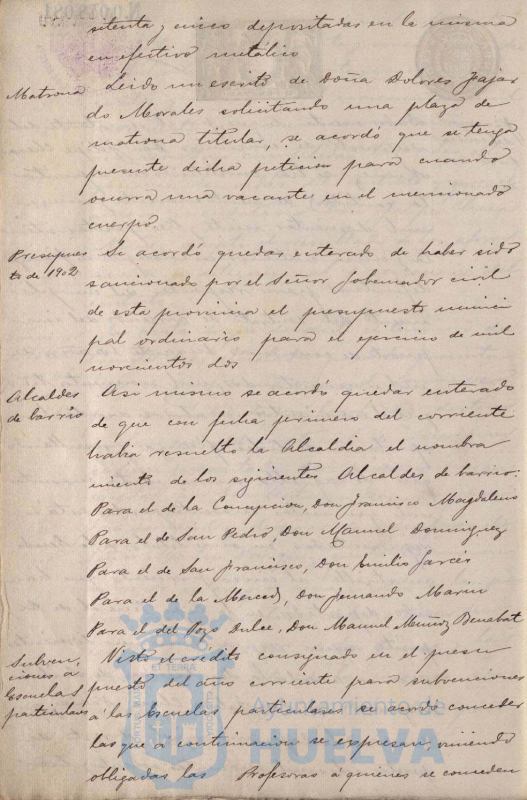 N.0.078.081
setenta y cinco depositadas en la misma
en efectivo metálico
Matrona
Leido un escrito de Doña Dolores Fajar
do Morales solicitando una plaza de
matrona titular, se acordó que se tenga
presente dicha peticion para cuando
ocurra una vacante en el mencionado
cuerpo
Presupues
to de 1902
Se acordó quedar enterado de haber sido
sancionado por el Señor Gobernador civil
de esta provincia el presupuesto munici
pal ordinario para el ejercicio de mil
novecientos dos
Alcaldes
de barrio
Asi mismo se acordó quedar enterado
de que con fecha primero del corriente
habia resuelto la Alcaldia el nombra
miento de los siguientes Alcaldes de barrio:
Para el de la Concepcion, Don Francisco Magdaleno
Para el de San Pedro, Don Manuel Dominguez
Para el de San Francisco, Don Emilio Garcés
Para el de la Merced, Don Fernando Marin
Para el del Pozo Dulce, Don Manuel Munoz Benabat
Subven
ciones a
Escuelas
particulares
Visto el credito consignado en el presu
puesto del año corriente para subvenciones
á las Escuelas particulares se acordó conceder
las que á continuacion se expresan, viniendo
obligadas las Profesoras á quienes se conceden
Ayuntamiento de
HUELVA